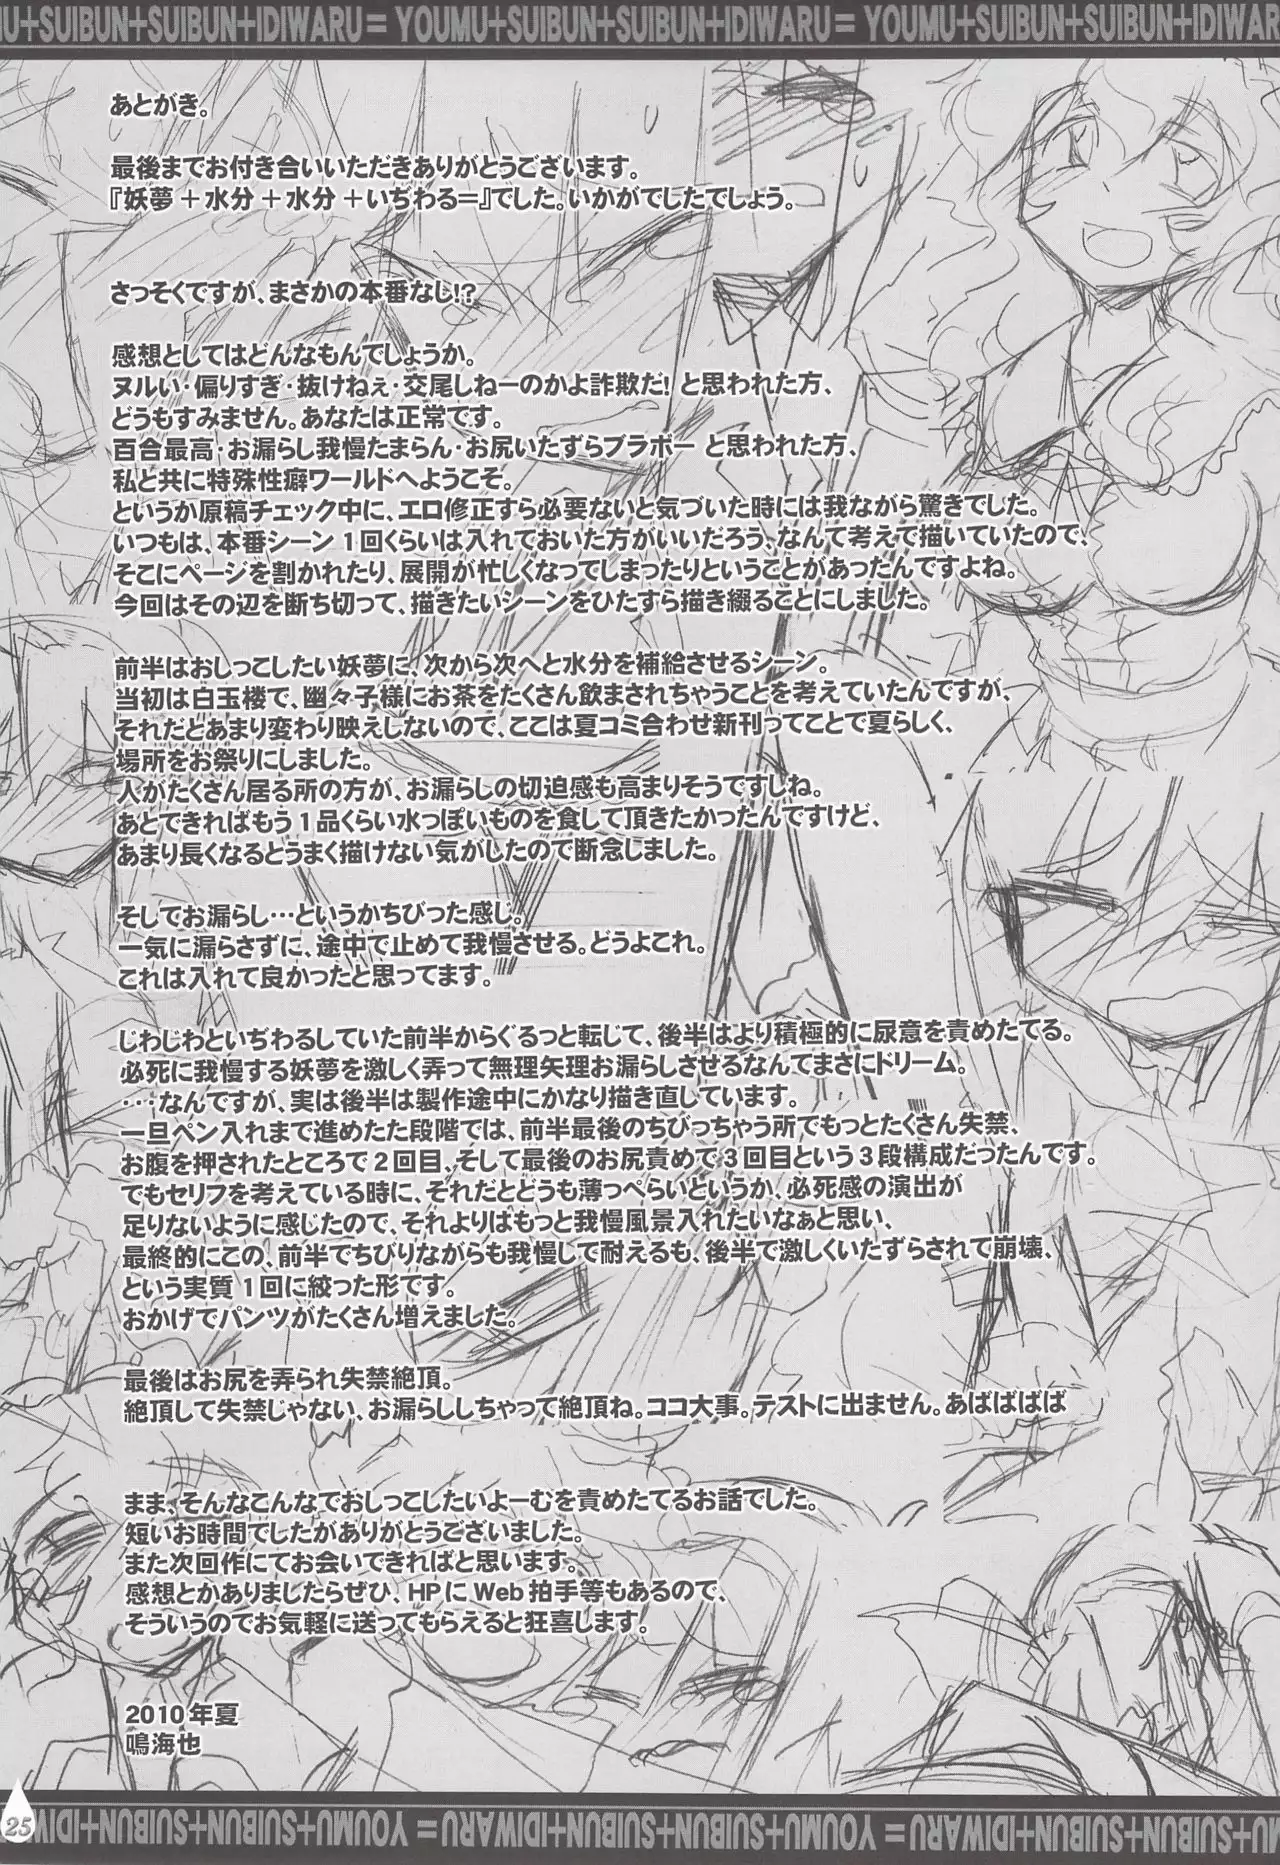 MU+SUIBUN+SUIBUN+IDIWARU= YOUMU+SUIBUN+SUIBUN+IDIWARU= YOUMU+SUIBUN+SUIBUN+IDIWARU
あとがき。
最後までお付き合いいただきありがとうございます。
『妖夢+水分+水分+いぢわる=』でした。いかがでしたでしょう。
さっそくですが、まさかの本番なし!?
感想としてはどんなもんでしょうか。
ヌルい・偏りすぎ・抜けねぇ・交尾しねーのかよ詐欺だ! と思われた方、
どうもすみません。あなたは正常です。
百合最高・お漏らし我慢たまらん・お尻いたずらブラボー と思われた方、
私と共に特殊性癖ワールドへようこそ。
というか原稿チェック中に、エロ修正すら必要ないと気づいた時には我ながら驚きでした。
いつもは、本番シーン1回くらいは入れておいた方がいいだろう、なんて考えで描いていたので、
そこにページを割かれたり、展開が忙しくなってしまったりということがあったんですよね。
今回はその辺を断ち切って、描きたいシーンをひたすら描き綴ることにしました。
前半はおしっこしたい妖夢に、次から次へと水分を補給させるシーン。
当初は白玉楼で、幽々子様にお茶をたくさん飲まされちゃうことを考えていたんですが、
それだとあまり変わり映えしないので、ここは夏コミ合わせ新刊ってことで夏らしく、
場所をお祭りにしました。
人がたくさん居る所の方が、お漏らしの切迫感も高まりそうですしね。
あとできればもう1品くらい水っぽいものを食して頂きたかったんですけど、
あまり長くなるとうまく描けない気がしたので断念しました。
そしてお漏らし…というかちびった感じ。
一気に漏らさずに、途中で止めて我慢させる。どうよこれ。
これは入れて良かったと思ってます。
じわじわといぢわるしていた前半からぐるっと転じて、後半はより積極的に尿意を責めたてる。
必死に我慢する妖夢を激しく弄って無理矢理お漏らしさせるなんてまさにドリーム。
・・・なんですが、実は後半は製作途中にかなり描き直しています。
一旦ペン入れまで進めたた段階では、前半最後のちびっちゃう所でもっとたくさん失禁、
お腹を押されたところで2回目、そして最後のお尻責めで3回目という3段構成だったんです。
でもセリフを考えている時に、それだとどうも薄っぺらいというか、必死感の演出が
足りないように感じたので、それよりはもっと我慢風景入れたいなぁと思い、
最終的にこの、前半でちびりながらも我慢して耐えるも、後半で激しくいたずらされて崩壊、
という実質1回に絞った形です。
おかげでパンツがたくさん増えました。
最後はお尻を弄られ失禁絶頂。
絶頂して失禁じゃない、お漏らししちゃって絶頂ね。ココ大事。テストに出ません。あばばばばば
まま、そんなこんなでおしっこしたいよーむを責めたてるお話でした。
短いお時間でしたがありがとうございました。
また次回作にてお会いできればと思います。
感想とかありましたらぜひ、HPにWeb拍手等もあるので、
そういうのでお気軽に送ってもらえると狂喜します。
2010年夏
鳴海也
25
MU+SUIBUN+SUIBUN+IDIWARU= YOUMU+SUIBUN+SUIBUN+IDIWARU= YOUMU+SUIBUN+SUIBUN+IDIW